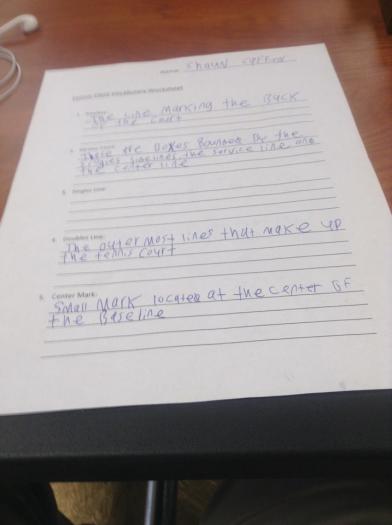 Name: Shaun
Tennis Court Vocabulary Worksheet
1.
The Line Marking the Back
of the court
2.
These are Boxes Bounded By the
singles sidelines, the service line and
the center line
3. Singles Line:
4. Doubles Line:
The outer most lines that make up
the tennis court
5. Center Mark:
Small Mark located at the center of
the Baseline